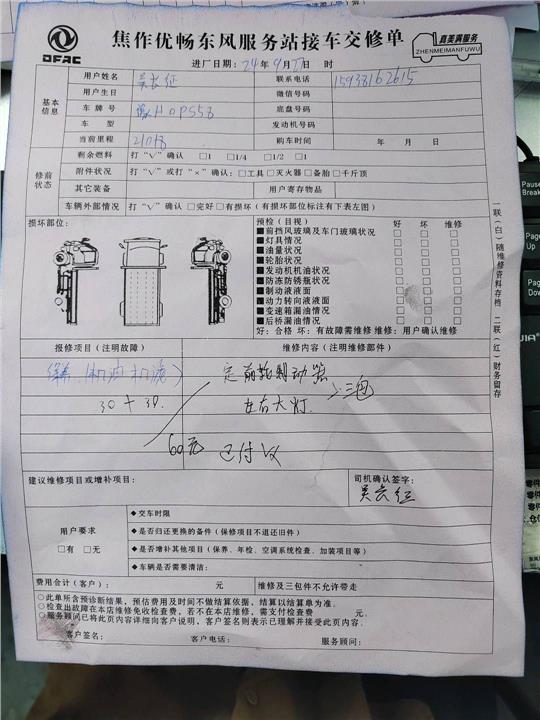 DFAC
焦作优畅东风服务站接车交修单
真美满服务
ZHENMEIMANFUWU
进厂日期：24年9月 日 时
基本信息
用户姓名 吴长征 联系电话 15938162615
用户生日 微信号码
车牌号 豫H0P558 底盘号码
车型 发动机号码
当前里程 21018 购车时间 年 月 日
修前状态
剩余燃料 打“√”确认 □1 □1/4 □1/2 □1
附件状况 打“√”或打“×”确认：□工具□灭火器□备胎□千斤顶
其它装备 用户寄存物品
车辆外部情况 打“√”确认□完好□有损坏（有损坏部位标注有下表左图）
损坏部位：
预检（目视） 好 坏 维修
■前挡风玻璃及车门玻璃状况 □ □ □
■灯具情况 □ □ □
■油量状况 □ □ □
■轮胎状况 □ □ □
■发动机机油状况 □ □ □
■防冻防锈瓶状况 □ □ □
■制动液液面 □ □ □
■动力转向液液面 □ □ □
■变速箱漏油情况 □ □ □
■后桥漏油情况 □ □ □
好：合格 坏：有故障需维修 维修：用户确认维修
报修项目（注明故障） 维修内容（注明维修部件）
保养（机油机滤） 前轮制动器
30+30. 左右大灯. 三包
60元 已付
建议维修项目或增补项目： 司机确认签字：
吴长征
用户要求
□有 □无
◆交车时限
◆是否归还更换的备件（保修项目不退还旧件）
◆是否增补其他项目（保养、年检、空调系统检查、加装项目等）
◆车辆是否需要清洁：
费用合计（客户）： 元 维修及三包件不允许带走
○此单所含预诊断结果，预估费用及时间不做结算依据，结算以结算单为准。
○检查出故障在本店维修免收检查费，若不在本店维修，需支付检查费 元。
○服务顾问已将此页内容详细向客户说明，客户签名则表示已理解并接受此页内容。
客户签名： 客户电话： 服务顾问：
一联（白）随维修资料存档 二联（红）财务留存
Pause
Break
Page
Up
Page